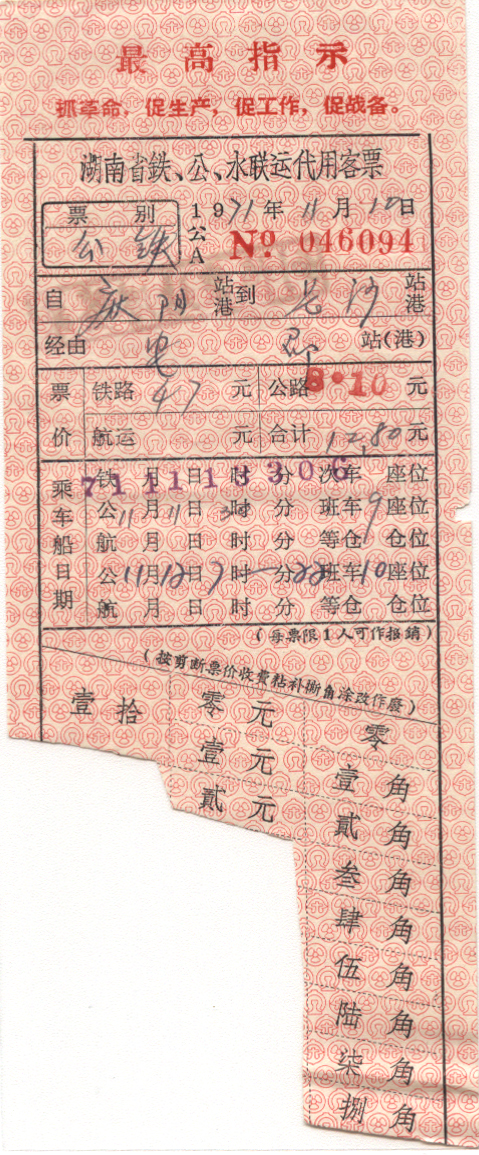 最高指示
抓革命，促生产，促工作，促战备。
湖南省鉄、公、水联运代用客票
票别 公鉄
1971年11月10日
公A № 046094
自 阳 站港到 长沙 站港
经由 站(港)
票价 铁路 47 元 公路 8·10 元
航运 元 合计 12.80 元
7111113306
乘车船日期
铁 月 日 时 分 次车 座位
公 11月11日 时 分 班车 9 座位
航 月 日 时 分 等仓 仓位
公 11月12日7时 分 班车10座位
航 月 日 时 分 等仓 仓位
(每票限1人可作报销)
(按剪断票价收费粘补撕角涂改作废)
壹拾 零元 零
壹元 壹角
贰元 贰角
叁角
肆角
伍角
陆角
柒角
捌角